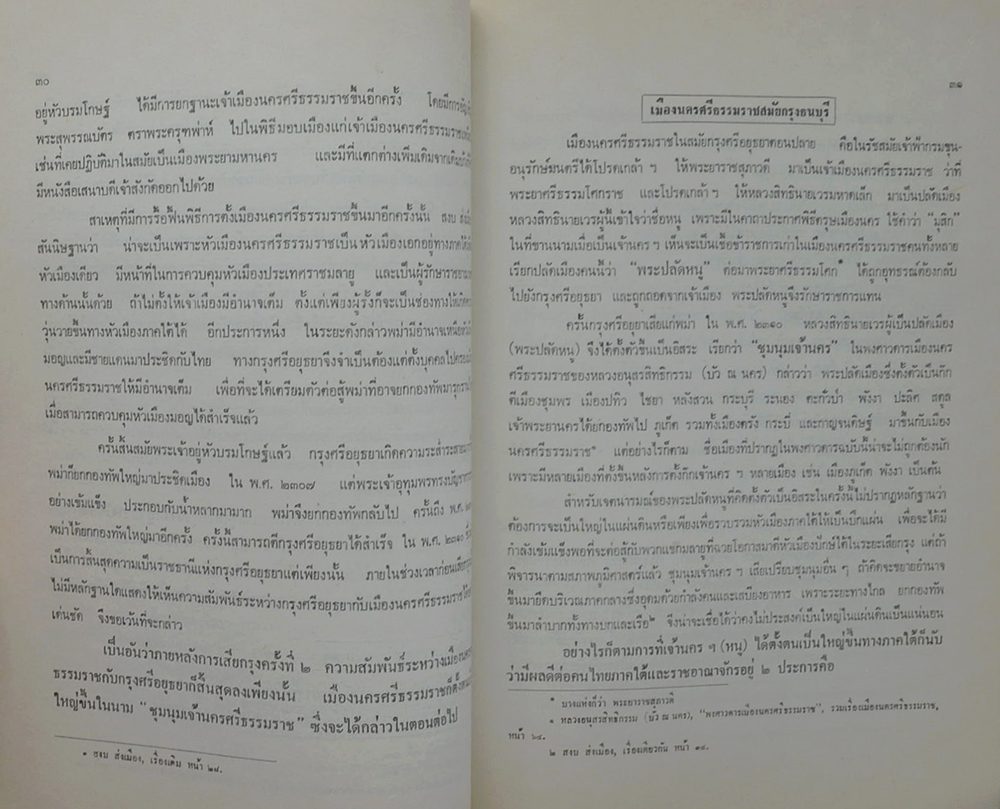 ๓๐
อยู่หัวบรมโกษฐ์ ได้มีการยกฐานะเจ้าเมืองนครศรีธรรมราชขึ้นอีกครั้ง โดยมีการ
พระสุพรรณบัตร ตราพระครุฑพ่าห์ ไปในพิธีมอบเมืองแก่เจ้าเมืองนครศรีธรรมราช
เช่นที่เคยปฏิบัติมาในสมัยเป็นเมืองพระยามหานคร และมีที่แตกต่างเพิ่มเติมจากเดิม
มีหนังสือเสนาบดีเจ้าสังกัดออกไปด้วย
สาเหตุที่มีการรื้อฟื้นพิธีการตั้งเมืองนครศรีธรรมราชขึ้นมาอีกครั้งนั้น สงบ
สันนิษฐานว่า น่าจะเป็นเพราะหัวเมืองนครศรีธรรมราชเป็นหัวเมืองเอกอยู่ทางภาคใต้
หัวเมืองเดียว มีหน้าที่ในการควบคุมหัวเมืองประเทศราชมลายู และเป็นผู้รักษา
ทางด้านนั้นด้วย ถ้าไม่ตั้งให้เจ้าเมืองมีอำนาจเต็ม ตั้งแต่เพียงผู้รั้งก็จะเป็นช่องทางให้
วุ่นวายขึ้นทางหัวเมืองภาคใต้ได้ อีกประการหนึ่ง ในระยะดังกล่าวพม่ามีอำนาจเหนือ
มอญและมีชายแดนมาประชิดกับไทย ทางกรุงศรีอยุธยาจึงจำเป็นต้องแต่งตั้งบุคคลไป
นครศรีธรรมราชให้มีอำนาจเต็ม เพื่อที่จะได้เตรียมตัวต่อสู้พม่าที่อาจยกกองทัพมา
เมื่อสามารถควบคุมหัวเมืองมอญได้สำเร็จแล้ว
ครั้นสิ้นสมัยพระเจ้าอยู่หัวบรมโกษฐ์แล้ว กรุงศรีอยุธยาเกิดความระส่ำระสาย
พม่าก็ยกกองทัพใหญ่มาประชิดเมือง ใน พ.ศ. ๒๓๐๗ แต่พระเจ้าอุทุมพรทรง
อย่างเข้มแข็ง ประกอบกับน้ำหลากมามาก พม่าจึงยกกองทัพกลับไป ครั้นถึง พ.ศ.
พม่าได้ยกกองทัพใหญ่มาอีกครั้ง ครั้งนี้สามารถตีกรุงศรีอยุธยาได้สำเร็จ ใน พ.ศ. ๒๓๑๐
เป็นการสิ้นสุดความเป็นราชธานีแห่งกรุงศรีอยุธยาแต่เพียงนั้น ภายในช่วงเวลาก่อนเสีย
ไม่มีหลักฐานใดแสดงให้เห็นความสัมพันธ์ระหว่างกรุงศรีอยุธยากับเมืองนครศรีธรรมราช
เด่นชัด จึงขอเว้นที่จะกล่าว
เป็นอันว่าภายหลังการเสียกรุงครั้งที่ ๒ ความสัมพันธ์ระหว่างเมือง
ธรรมราชกับกรุงศรีอยุธยาก็สิ้นสุดลงเพียงนั้น เมืองนครศรีธรรมราชก็ตั้ง
ใหญ่ขึ้นในนาม “ชุมนุมเจ้านครศรีธรรมราช” ซึ่งจะได้กล่าวในตอนต่อไป
๑ สงบ ส่งเมือง, เรื่องเดิม หน้า ๒๙.
๓๑
เมืองนครศรีธรรมราชสมัยกรุงธนบุรี
เมืองนครศรีธรรมราชในสมัยกรุงศรีอยุธยาตอนปลาย คือในรัชสมัยเจ้าฟ้ากรมขุน-
อนุรักษ์มนตรีได้โปรดเกล้า ฯ ให้พระยาราชสุภาวดี มาเป็นเจ้าเมืองนครศรีธรรมราช ว่าที่
พระยาศรีธรรมโศกราช และโปรดเกล้า ฯ ให้หลวงสิทธินายเวรมหาดเล็ก มาเป็นปลัดเมือง
หลวงสิทธินายเวรผู้นี้เข้าใจว่าชื่อหนู เพราะมีในคาถาประกาศพิธีตรุษเมืองนคร ใช้คำว่า “มุสิก”
ในที่ขานนามเมื่อเป็นเจ้านคร ฯ เห็นจะเป็นเชื้อข้าราชการเก่าในเมืองนครศรีธรรมราชคนทั้งหลาย
เรียกปลัดเมืองคนนี้ว่า “พระปลัดหนู” ต่อมาพระยาศรีธรรมโศก* ได้ถูกอุทธรณ์ต้องกลับ
ไปยังกรุงศรีอยุธยา และถูกถอดจากเจ้าเมือง พระปลัดหนูจึงรักษาราชการแทน
ครั้นกรุงศรีอยุธยาเสียแก่พม่า ใน พ.ศ. ๒๓๑๐ หลวงสิทธินายเวรผู้เป็นปลัดเมือง
(พระปลัดหนู) จึงได้ตั้งตัวขึ้นเป็นอิสระ เรียกว่า “ชุมนุมเจ้านคร” ในพงศาวดารเมืองนคร
ศรีธรรมราชของหลวงอนุสรสิทธิกรรม (บัว ณ นคร) กล่าวว่า พระปลัดเมืองซึ่งตั้งตัวเป็นก๊ก
ตีเมืองชุมพร เมืองปทิว ไชยา หลังสวน กระบุรี ระนอง ตะกั่วป่า พังงา ปะลิศ สตูล
เจ้าพระยานครได้ยกทัพไป ภูเก็ต รวมทั้งเมืองตรัง กระบี่ และกาญจนดิษฐ์ มาขึ้นกับเมือง
นครศรีธรรมราช๑ แต่อย่างไรก็ตาม ชื่อเมืองที่ปรากฏในพงศาวดารฉบับนี้น่าจะไม่ถูกต้องนัก
เพราะมีหลายเมืองที่ตั้งขึ้นหลังการตั้งก๊กเจ้านคร ฯ หลายเมือง เช่น เมืองภูเก็ต พังงา เป็นต้น
สำหรับเจตนารมณ์ของพระปลัดหนูที่คิดตั้งตัวเป็นอิสระในครั้งนี้ไม่ปรากฏหลักฐานว่า
ต้องการจะเป็นใหญ่ในแผ่นดินหรือเพียงเพื่อรวบรวมหัวเมืองภาคใต้ให้เป็นปึกแผ่น เพื่อจะได้มี
กำลังเข้มแข็งพอที่จะต่อสู้กับพวกแขกมลายูที่ฉวยโอกาสมาตีหัวเมืองปักษ์ใต้ในระยะเสียกรุง แต่ถ้า
พิจารณาตามสภาพภูมิศาสตร์แล้ว ชุมนุมเจ้านคร ฯ เสียเปรียบชุมนุมอื่น ๆ ถ้าคิดจะขยายอำนาจ
ขึ้นมายึดบริเวณภาคกลางซึ่งอุดมด้วยกำลังคนและเสบียงอาหาร เพราะระยะทางไกล ยกกองทัพ
ขึ้นมาลำบากทั้งทางบกและเรือ๒ จึงน่าจะเชื่อได้ว่าคงไม่ประสงค์เป็นใหญ่ในแผ่นดินเป็นแน่นอน
อย่างไรก็ตามการที่เจ้านคร ฯ (หนู) ได้ตั้งตนเป็นใหญ่ขึ้นทางภาคใต้ก็นับ
ว่ามีผลดีต่อคนไทยภาคใต้และราชอาณาจักรอยู่ ๒ ประการคือ
* บางแห่งก็ว่า พระยาราชสุภาวดี
๑ หลวงอนุสรสิทธิกรรม (บัว ณ นคร), “พงศาวดารเมืองนครศรีธรรมราช”, รวมเรื่องเมืองนครศรีธรรมราช,
หน้า ๖๔.
๒ สงบ ส่งเมือง, เรื่องเดียวกัน หน้า ๓๔.